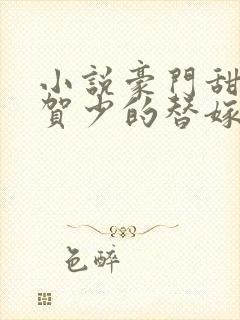 小說豪門甜
賀少的替嫁
色醉